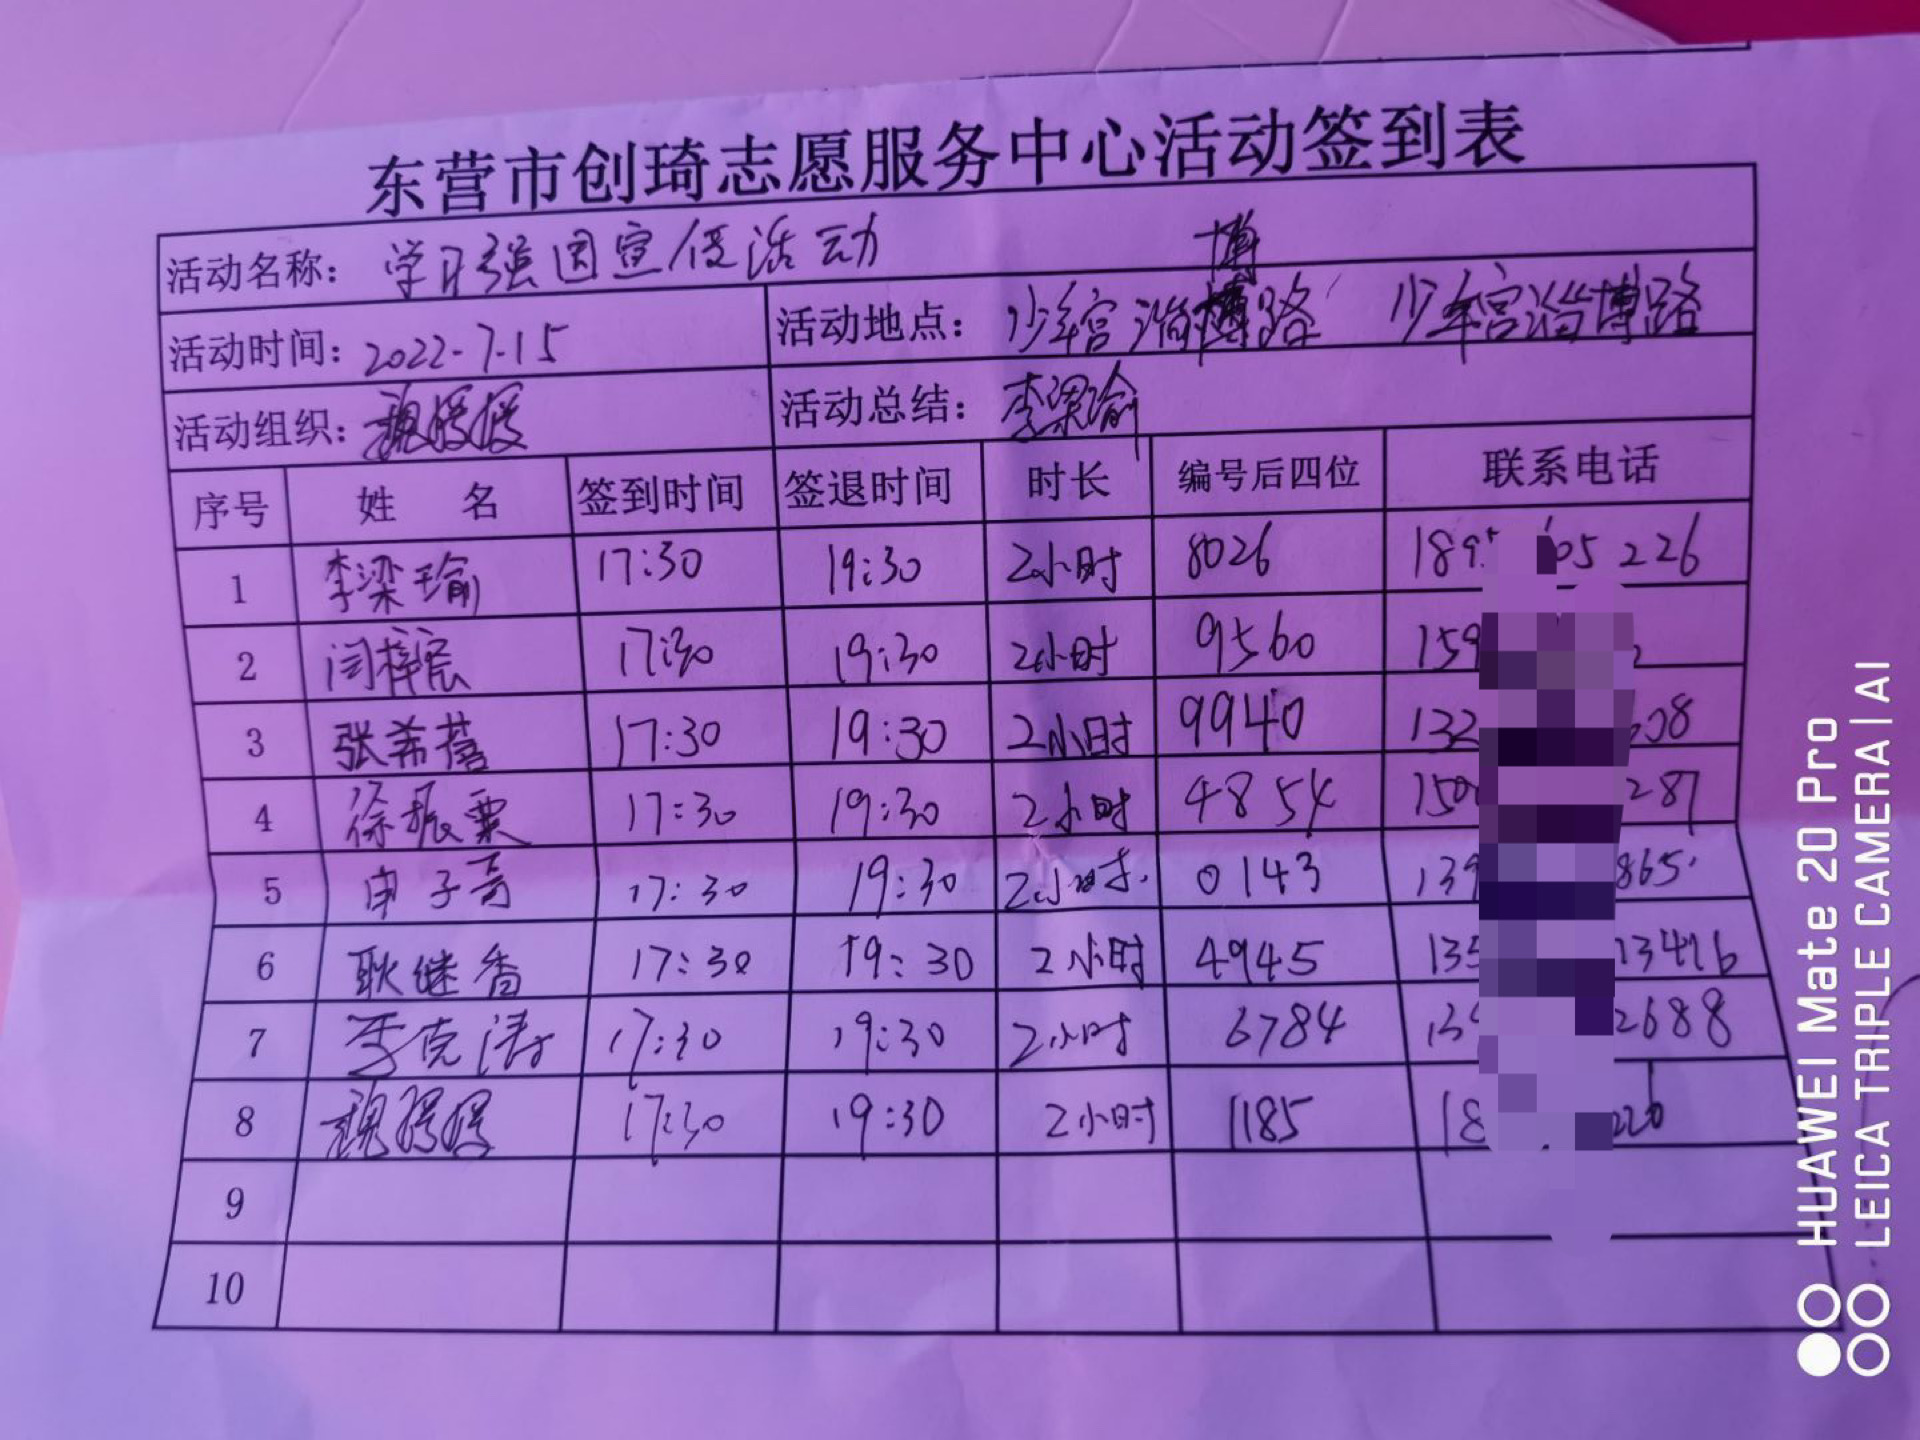 东营市创琦志愿服务中心活动签到表
活动名称：学习强国宣传活动
博
活动时间：2022.7.15 活动地点：少年宫淄博路 少年宫淄博路
活动组织：魏媛媛 活动总结：李梁瑜
序号 姓 名 签到时间 签退时间 时长 编号后四位 联系电话
1 李梁瑜 17:30 19:30 2小时 8026 189 05226
2 闫梓宸 17:30 19:30 2小时 9560 159
3 张希蓓 17:30 19:30 2小时 9940 132 08
4 徐振粟 17:30 19:30 2小时 4854 150 287
5 申子奇 17:30 19:30 2小时 0143 139 865
6 耿继香 17:30 19:30 2小时 4945 135 13416
7 李克涛 17:30 19:30 2小时 6784 139 2688
8 魏媛媛 17:30 19:30 2小时 1185 18 226
9
10
HUAWEI Mate 20 Pro
LEICA TRIPLE CAMERA | AI